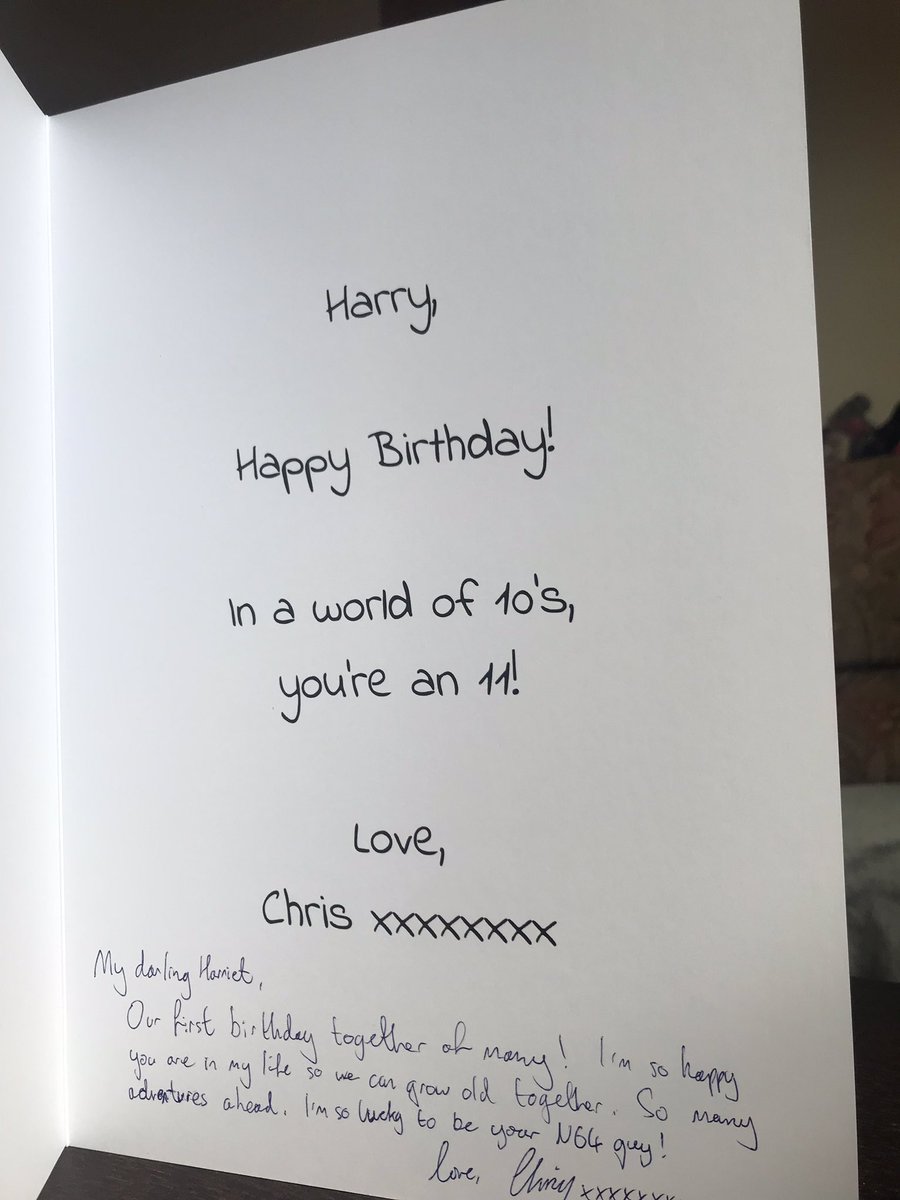 Harry,
Happy Birthday!
In a world of 10's,
you're an 11!
Love,
Chris xxxxxxxx
My darling Harriet,
Our first birthday together of many! I'm so happy
you are in my life so we can grow old together. So many
adventures ahead. I'm so lucky to be your N64 guy!
love, Chris xxxxxxx